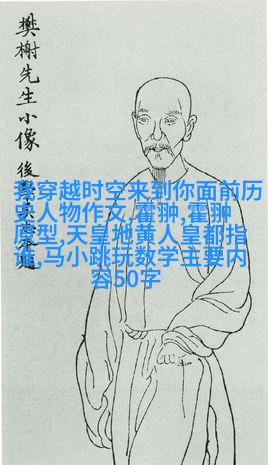 樊榭先生小像
後學
我穿越时空来到你面前历
史人物作文,霍翀,霍翀
原型,天皇地黄人皇都指
谁,马小跳玩数学主要内
容50字